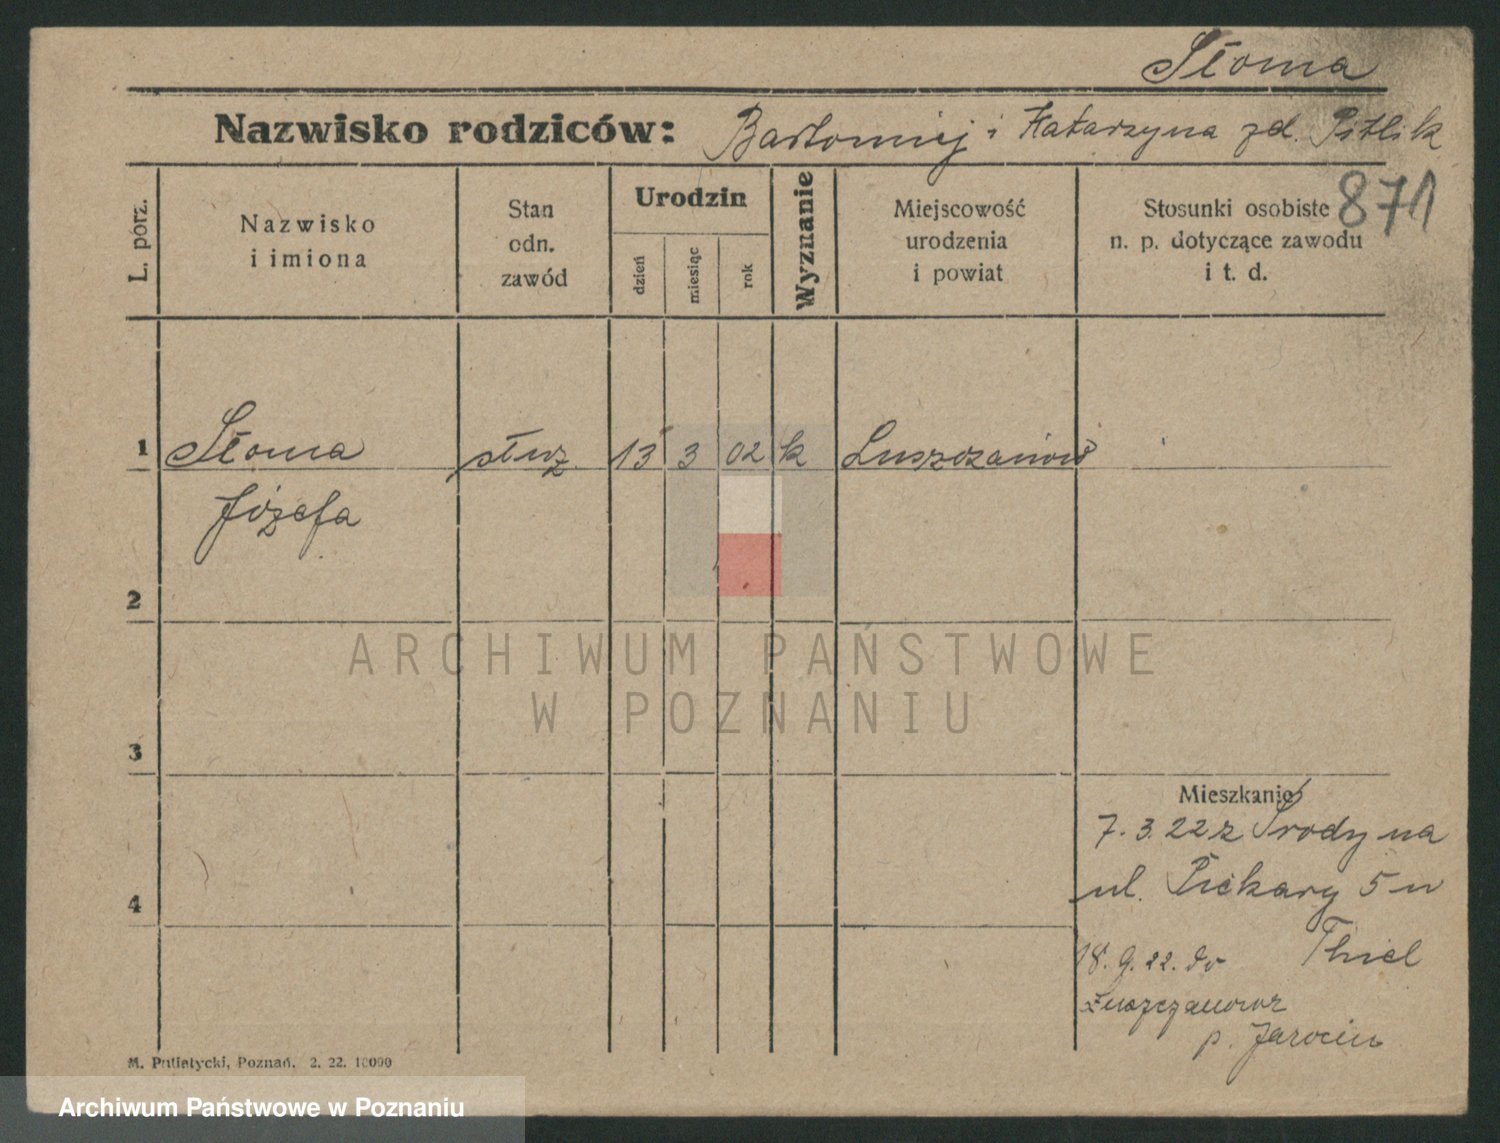 Słoma
Nazwisko rodziców: Bartłomiej i Katarzyna zd. Pitlik
871
L. porz.
Nazwisko
i imiona
Stan
odn.
zawód
Urodzin
dzień
miesiąc
rok
Wyznanie
Miejscowość
urodzenia
i powiat
Stosunki osobiste
n. p. dotyczące zawodu
i t. d.
1 Słoma służ. 13 3 02 k Luszczanów
Józefa
2
ARCHIWUM PAŃSTWOWE
W POZNANIU
3
Mieszkanie
7. 3. 22 z Środy na
ul. Piekary 5 u
4
Thiel
18. 9. 22. do
Łuszczanowa
p. Jarocin
M. Putiatycki, Poznań. 2. 22. 10000
Archiwum Państwowe w Poznaniu